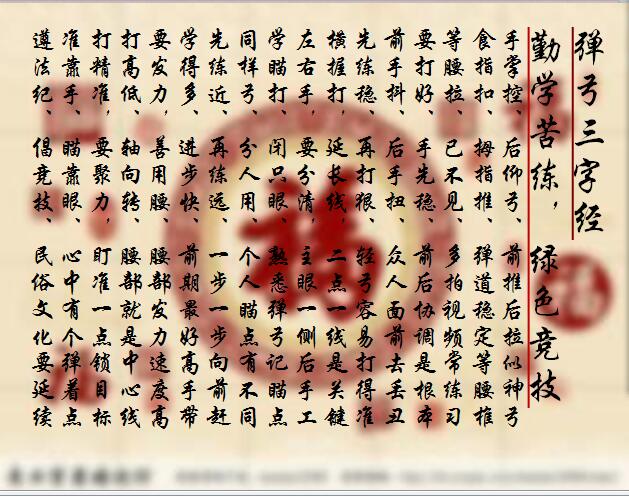 弹弓三字经
勤学苦练，绿色竞技
手掌控、后仰弓、前推后拉似神弓
食指扣、拇指推、弹道稳定等腰椎
等腰拉、已不见、多拍视频常练习
要打好、手先稳、前后协调是根本
前手抖、后手扭、众人面前去丢丑
先练稳、再打狠、轻弓容易打得准
横握打，延长线，二点一线是关键
左右手，要分清，主眼一侧后手工
学瞄打、闭只眼、熟悉弹弓记瞄点
同样弓、分人用、个人瞄点有不同
先练近、再练远、一步一步向前赶
学得多、进步快、前期最好高手带
要发力，善用腰、腰部发力速度高
打高低、轴向转、腰部就是中心线
打精准，要聚力，盯准一点锁目标
准靠手、瞄靠眼、心中有个弹着点
遵法纪、倡竞技、民俗文化要延续
福